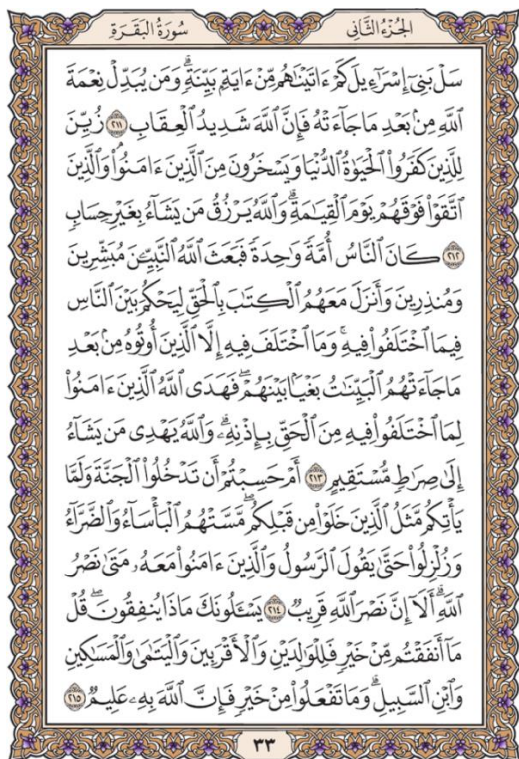 الجُزْءُ الثَّانِي
سُورَةُ البَقَرَةِ
سَلْ بَنِىٓ إِسْرَٰٓءِيلَ كَمْ ءَاتَيْنَٰهُم مِّنْ ءَايَةٍۭ بَيِّنَةٍۗ وَمَن يُبَدِّلْ نِعْمَةَ
ٱللَّهِ مِنۢ بَعْدِ مَا جَآءَتْهُ فَإِنَّ ٱللَّهَ شَدِيدُ ٱلْعِقَابِ ٢١١ زُيِّنَ
لِلَّذِينَ كَفَرُواْ ٱلْحَيَوٰةُ ٱلدُّنْيَا وَيَسْخَرُونَ مِنَ ٱلَّذِينَ ءَامَنُواْۘ وَٱلَّذِينَ
ٱتَّقَوْاْ فَوْقَهُمْ يَوْمَ ٱلْقِيَٰمَةِۗ وَٱللَّهُ يَرْزُقُ مَن يَشَآءُ بِغَيْرِ حِسَابٍ
٢١٢ كَانَ ٱلنَّاسُ أُمَّةً وَٰحِدَةً فَبَعَثَ ٱللَّهُ ٱلنَّبِيِّـۧنَ مُبَشِّرِينَ
وَمُنذِرِينَ وَأَنزَلَ مَعَهُمُ ٱلْكِتَٰبَ بِٱلْحَقِّ لِيَحْكُمَ بَيْنَ ٱلنَّاسِ
فِيمَا ٱخْتَلَفُواْ فِيهِۚ وَمَا ٱخْتَلَفَ فِيهِ إِلَّا ٱلَّذِينَ أُوتُوهُ مِنۢ بَعْدِ
مَا جَآءَتْهُمُ ٱلْبَيِّنَٰتُ بَغْيَۢا بَيْنَهُمْۖ فَهَدَى ٱللَّهُ ٱلَّذِينَ ءَامَنُواْ
لِمَا ٱخْتَلَفُواْ فِيهِ مِنَ ٱلْحَقِّ بِإِذْنِهِۦۗ وَٱللَّهُ يَهْدِى مَن يَشَآءُ
إِلَىٰ صِرَٰطٍ مُّسْتَقِيمٍ ٢١٣ أَمْ حَسِبْتُمْ أَن تَدْخُلُواْ ٱلْجَنَّةَ وَلَمَّا
يَأْتِكُم مَّثَلُ ٱلَّذِينَ خَلَوْاْ مِن قَبْلِكُمۖ مَّسَّتْهُمُ ٱلْبَأْسَآءُ وَٱلضَّرَّآءُ
وَزُلْزِلُواْ حَتَّىٰ يَقُولَ ٱلرَّسُولُ وَٱلَّذِينَ ءَامَنُواْ مَعَهُۥ مَتَىٰ نَصْرُ
ٱللَّهِۗ أَلَآ إِنَّ نَصْرَ ٱللَّهِ قَرِيبٌ ٢١٤ يَسْـَٔلُونَكَ مَاذَا يُنفِقُونَۖ قُلْ
مَآ أَنفَقْتُم مِّنْ خَيْرٍ فَلِلْوَٰلِدَيْنِ وَٱلْأَقْرَبِينَ وَٱلْيَتَٰمَىٰ وَٱلْمَسَٰكِينِ
وَٱبْنِ ٱلسَّبِيلِۗ وَمَا تَفْعَلُواْ مِنْ خَيْرٍ فَإِنَّ ٱللَّهَ بِهِۦ عَلِيمٌ ٢١٥
٣٣